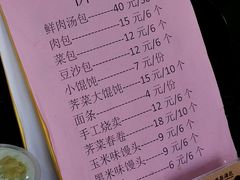 鲜肉汤包------40 元/
肉包----------15元/6个
菜包----------12元/6个
豆沙包--------12 元/6 个
小馄饨--------7元/份
荠菜大馄饨----15元/10个
面条----------4元/份
手工烧卖------12元/
荠菜春卷------18元/6个
玉米味馒头----9 元/6个
黑米味馒头----6元/6个